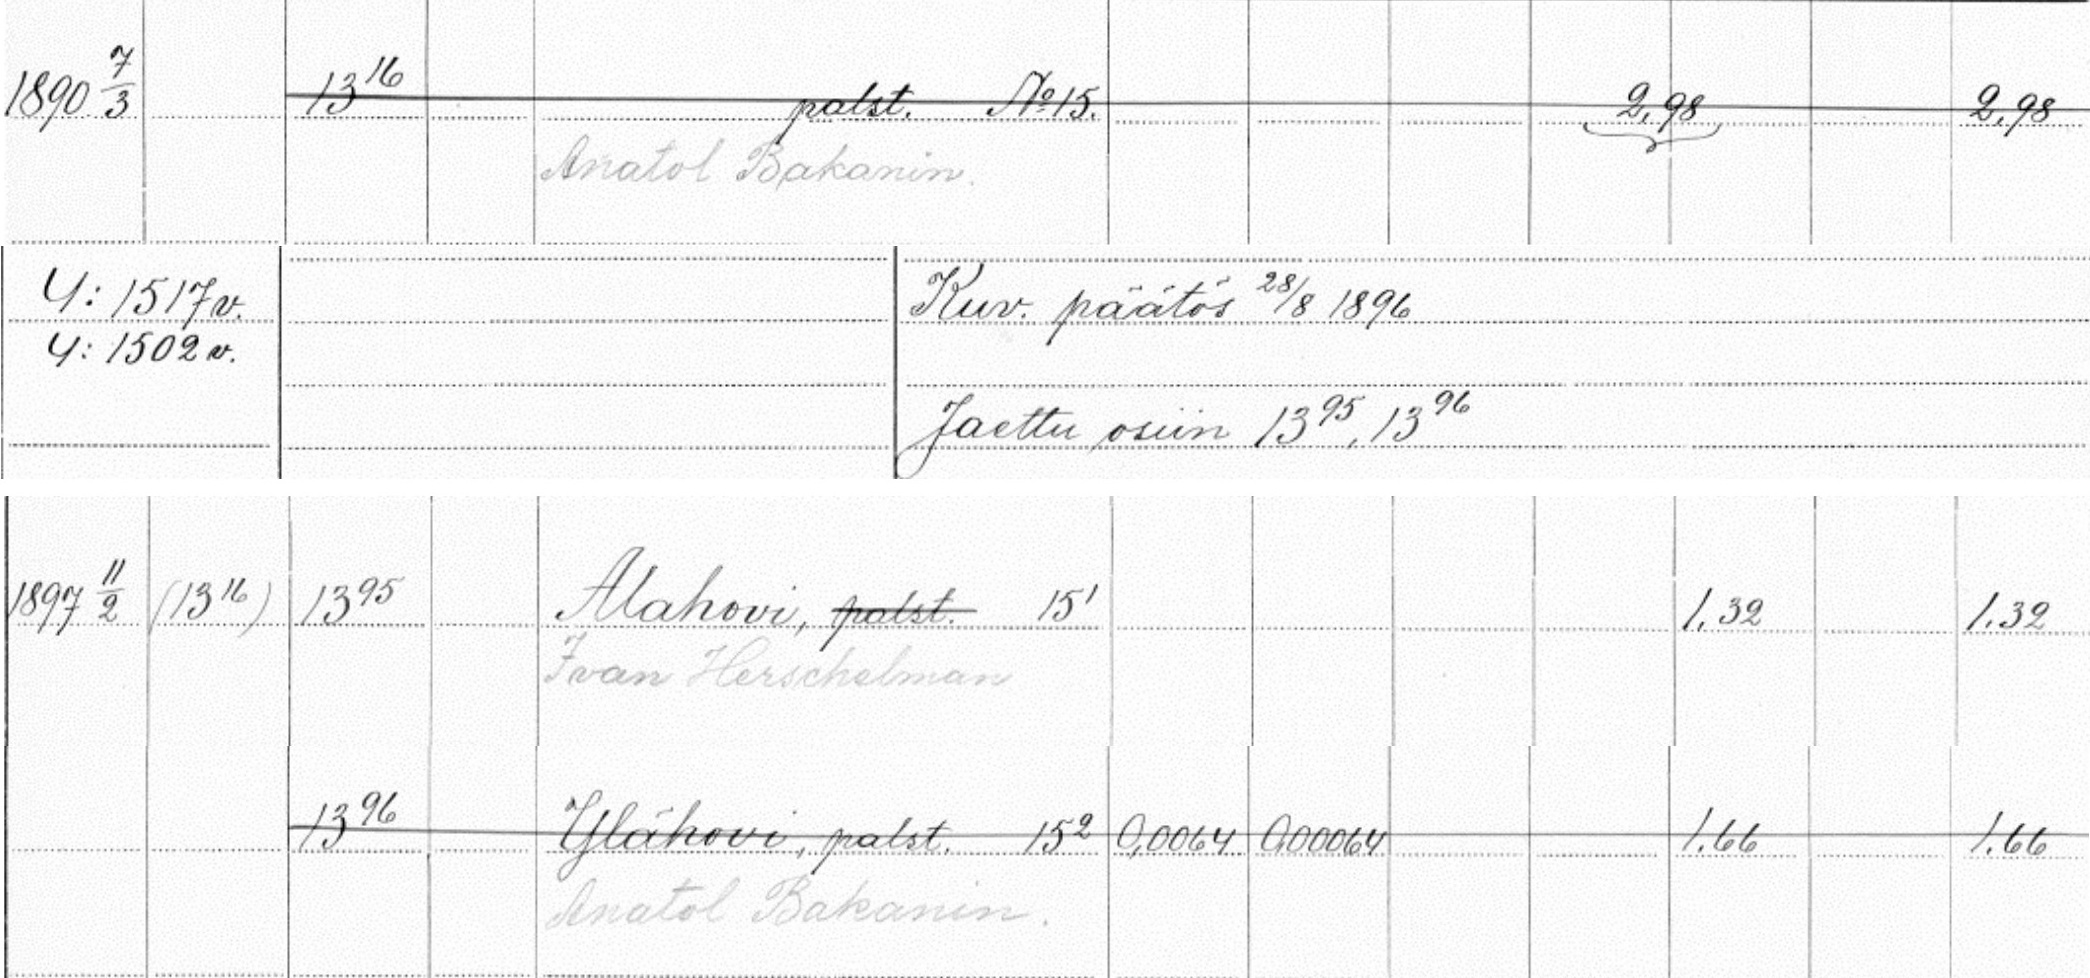 1890 7/3 13¹⁶ palst. No 15. 2,98 2,98
Anatol Bakanin.
Y: 1517 v. Kuv. päätös 28/8 1896
Y: 1502 v.
Jaettu osiin 13⁹⁵, 13⁹⁶
1897 11/2 (13¹⁶) 13⁹⁵ Alahovi, palst. 15¹ 1.32 1.32
Ivan Herschelman
13⁹⁶ Ylähovi, palst. 15² 0,0064 0,00064 1.66 1.66
Anatol Bakanin.